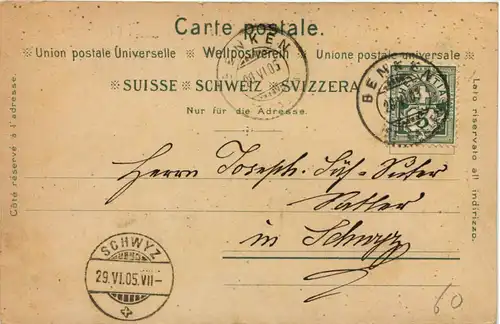 Carte postale.
Union postale Universelle Weltpostverein Unione postale universale
SUISSE SCHWEIZ SVIZZERA
Nur für die Adresse.
Côté réservé à l'adresse.
Lato riservato all indirizzo.
BENKEN
VI.05
BENKEN
Herrn Joseph
Sattler
in Schwyz
SCHWYZ
29.VI.05.VII-
60